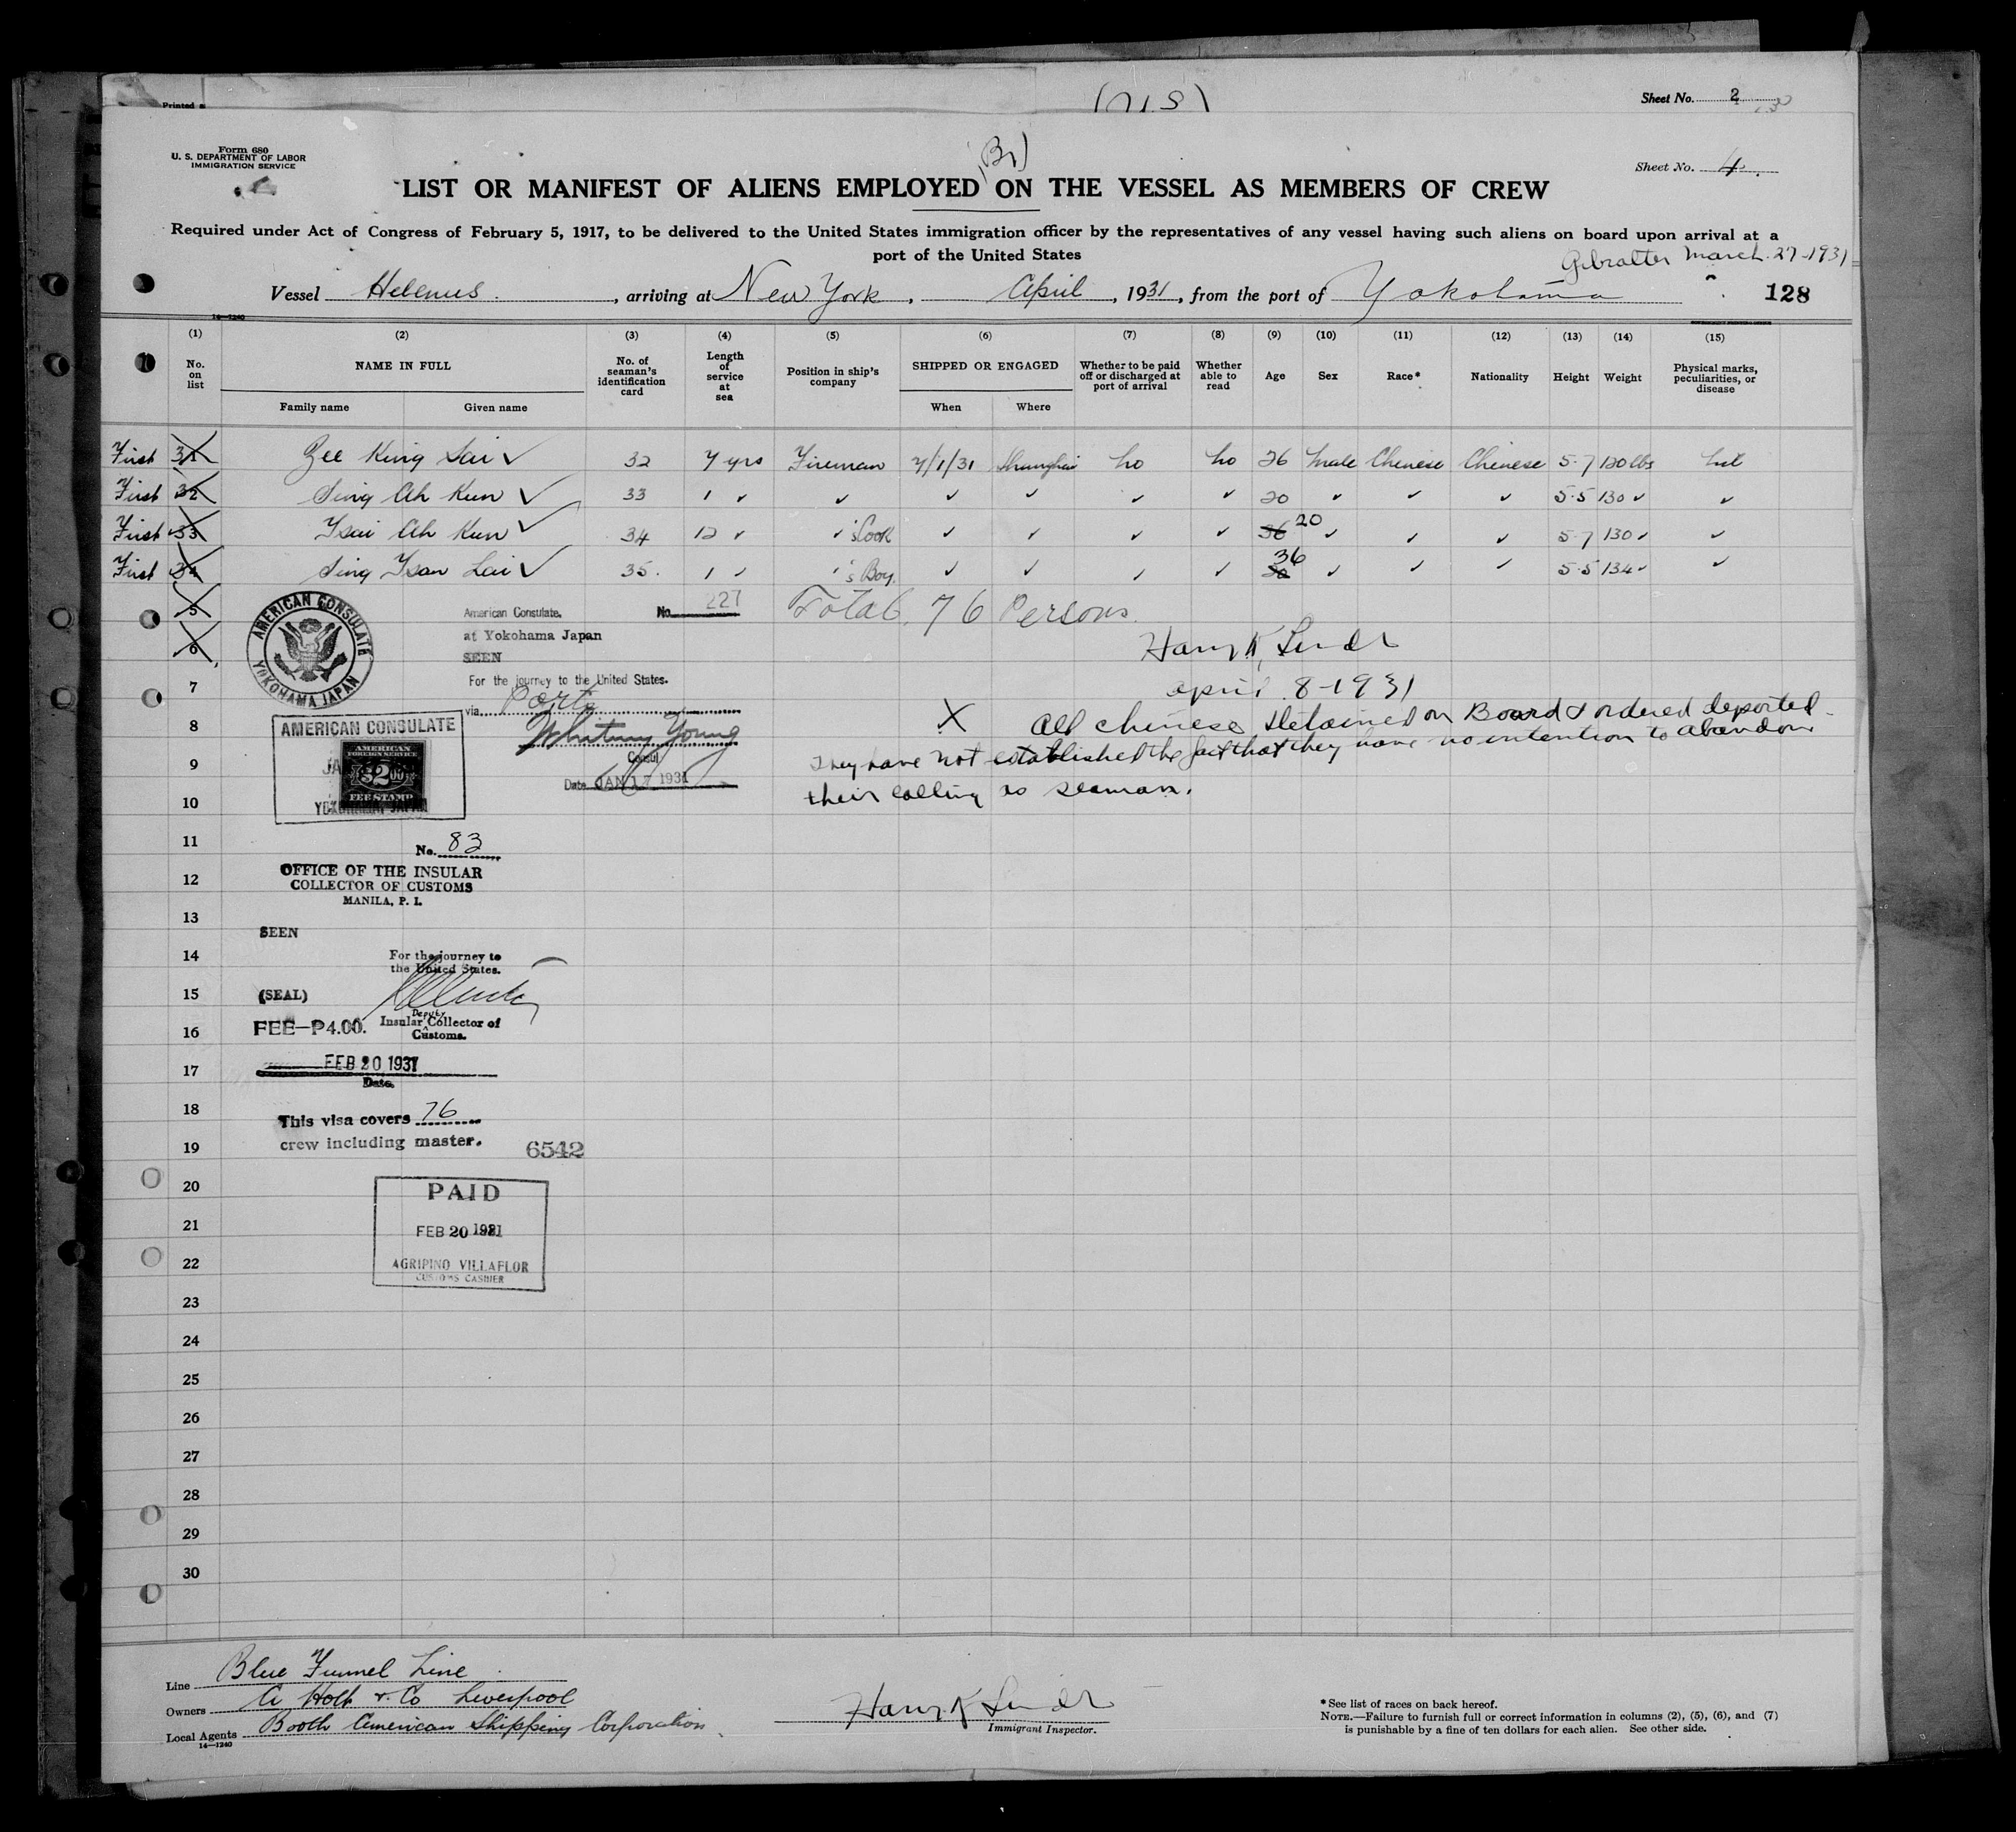 Printed
Sheet No. 2
Form 680
U. S. DEPARTMENT OF LABOR
IMMIGRATION SERVICE
(Br)
Sheet No. 4.
LIST OR MANIFEST OF ALIENS EMPLOYED ON THE VESSEL AS MEMBERS OF CREW
Required under Act of Congress of February 5, 1917, to be delivered to the United States immigration officer by the representatives of any vessel having such aliens on board upon arrival at a
port of the United States
Gibralter March 27-1931
Vessel Helenus. , arriving at New York , April , 1931 , from the port of Yokohama
128
14—1240
(1) (2) (3) (4) (5) (6) (7) (8) (9) (10) (11) (12) (13) (14) (15)
No. on list NAME IN FULL Family name Given name No. of seaman's identification card Length of service at sea Position in ship's company SHIPPED OR ENGAGED When Where Whether to be paid off or discharged at port of arrival Whether able to read Age Sex Race* Nationality Height Weight Physical marks, peculiarities, or disease
First 31 Zee King Sai ✓ 32 7 yrs Fireman 7/1/31 Shanghai No No 26 Male Chinese Chinese 5·7 120 lbs Nil
First 32 Sing Ah Kun ✓ 33 1 ✓ ✓ ✓ ✓ ✓ ✓ 20 ✓ ✓ ✓ 5·5 130 ✓ ✓
First 33 Tsai Ah Kun ✓ 34 12 ✓ ✓'s Cook ✓ ✓ ✓ ✓ 36 20 ✓ ✓ ✓ 5·7 130 ✓ ✓
First 34 Sing Tsan Lai ✓ 35. 1 ✓ 's Boy. ✓ ✓ ✓ ✓ 20 36 ✓ ✓ ✓ 5·5 134 ✓ ✓
5
6
7
8
9
10
11
12
13
14
15
16
17
18
19
20
21
22
23
24
25
26
27
28
29
30
AMERICAN CONSULATE
YOKOHAMA JAPAN
American Consulate. No. 227
at Yokohama Japan
SEEN
For the journey to the United States.
via Ports
Whitney Young
Consul
Date JAN 17 1931
Total 76 Persons.
Harry K. Lindr
April 8-1931
X All Chinese detained on Board & ordered deported
They have not established the fact that they have no intention to abandon
their calling as seaman.
AMERICAN CONSULATE
AMERICAN
FOREIGN SERVICE
$2.00
FEE STAMP
YOKOHAMA JAPAN
No. 83
OFFICE OF THE INSULAR
COLLECTOR OF CUSTOMS
MANILA, P. I.
SEEN
For the journey to
the United States.
(SEAL)
Deputy
Insular Collector of
Customs.
FEE—P4.00.
FEB 20 1931
Date.
This visa covers 76
crew including master.
6542
PAID
FEB 20 1931
AGRIPINO VILLAFLOR
CUSTOMS CASHIER
Line Blue Funnel Line
Owners A Holt & Co Liverpool
Local Agents Booth American Shipping Corporation
14—1240
Harry K Lindr
Immigrant Inspector.
* See list of races on back hereof.
NOTE.—Failure to furnish full or correct information in columns (2), (5), (6), and (7)
is punishable by a fine of ten dollars for each alien. See other side.